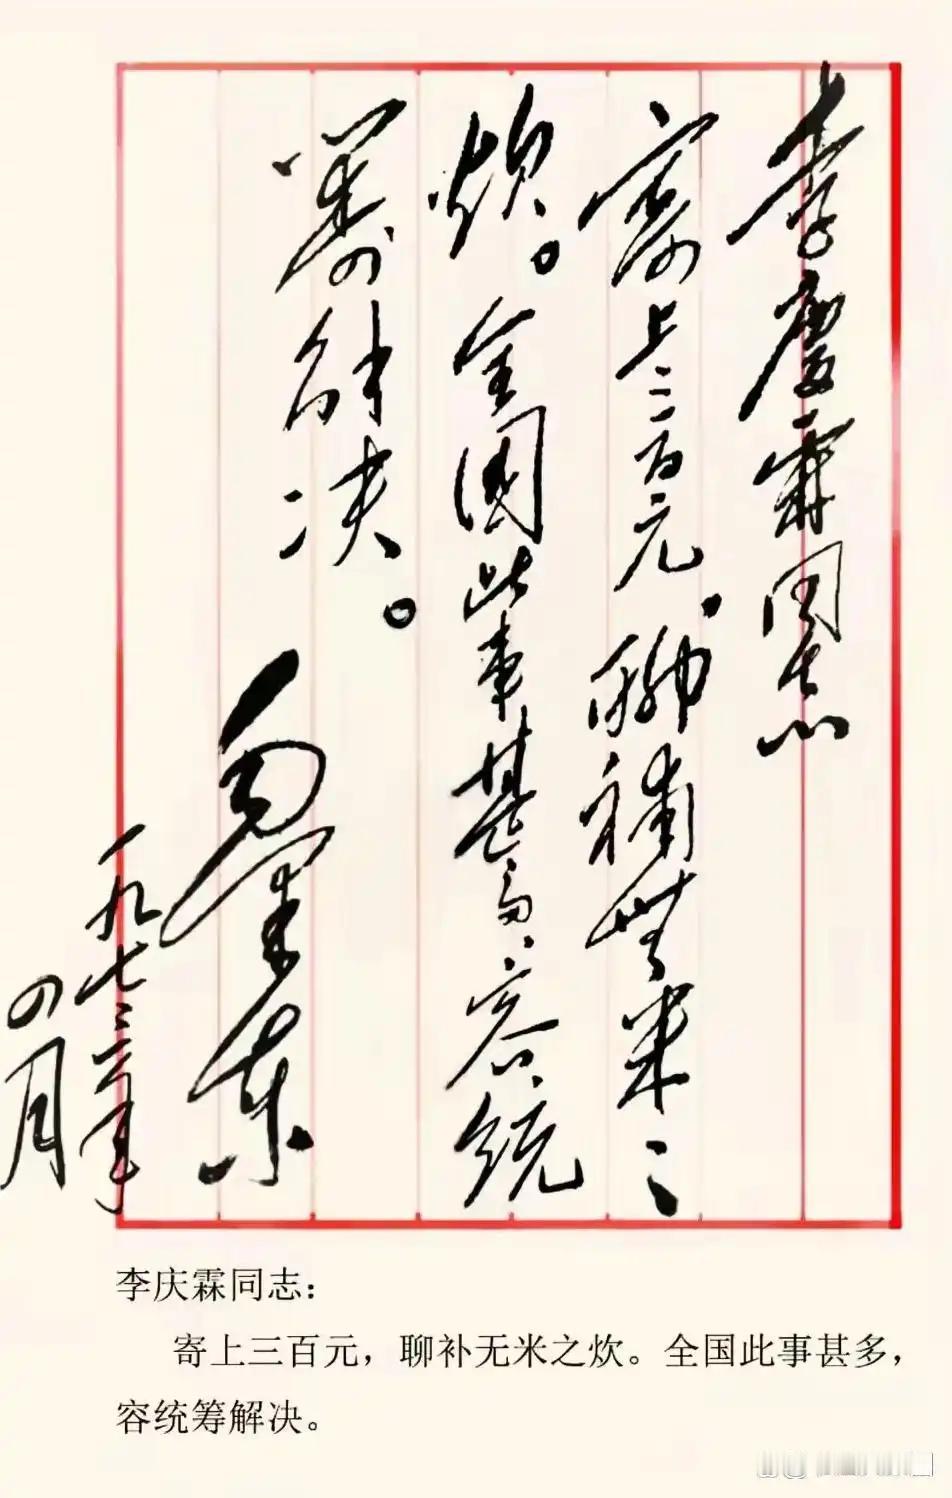 李慶霖同志
寄上三百元，聊補無米之
炊。全國此事甚多，容統
籌解决。
毛澤東
一九七三年
四月
李庆霖同志：
寄上三百元，聊补无米之炊。全国此事甚多，
容统筹解决。